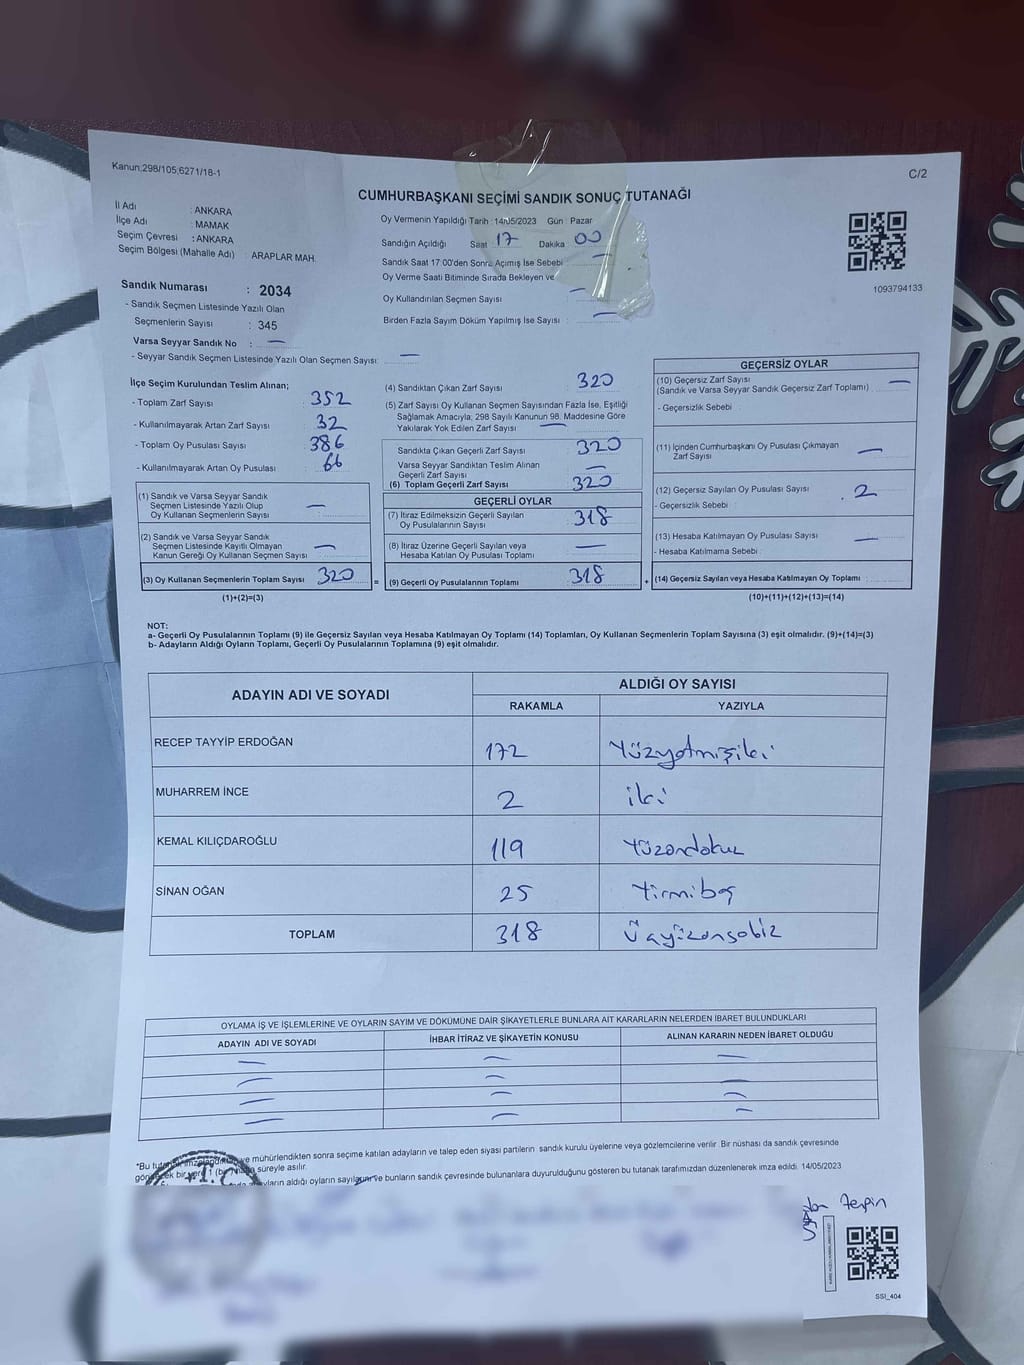 Kanun;298/105;6271/18-1
C/2
CUMHURBAŞKANI SEÇİMİ SANDIK SONUÇ TUTANAĞI
İl Adı : ANKARA
İlçe Adı : MAMAK
Seçim Çevresi : ANKARA
Seçim Bölgesi (Mahalle Adı) : ARAPLAR MAH.
Oy Vermenin Yapıldığı Tarih : 14/05/2023 Gün : Pazar
Sandığın Açıldığı Saat 17 Dakika 00
Sandık Saat 17:00'den Sonra Açımış İse Sebebi : —
Oy Verme Saati Bitiminde Sırada Bekleyen ve
Oy Kullandırılan Seçmen Sayısı —
Birden Fazla Sayım Döküm Yapılmış İse Sayısı : —
1093794133
Sandık Numarası : 2034
- Sandık Seçmen Listesinde Yazılı Olan
Seçmenlerin Sayısı : 345
Varsa Seyyar Sandık No : —
- Seyyar Sandık Seçmen Listesinde Yazılı Olan Seçmen Sayısı: —
İlçe Seçim Kurulundan Teslim Alınan;
- Toplam Zarf Sayısı : 352
- Kullanılmayarak Artan Zarf Sayısı : 32
- Toplam Oy Pusulası Sayısı : 386
- Kullanılmayarak Artan Oy Pusulası : 66
(1) Sandık ve Varsa Seyyar Sandık
Seçmen Listesinde Yazılı Olup
Oy Kullanan Seçmenlerin Sayısı —
(2) Sandık ve Varsa Seyyar Sandık
Seçmen Listesinde Kayıtlı Olmayan
Kanun Gereği Oy Kullanan Seçmen Sayısı —
(3) Oy Kullanan Seçmenlerin Toplam Sayısı 320
(1)+(2)=(3)
=
(4) Sandıktan Çıkan Zarf Sayısı : 320
(5) Zarf Sayısı Oy Kullanan Seçmen Sayısından Fazla İse, Eşitliği
Sağlamak Amacıyla; 298 Sayılı Kanunun 98. Maddesine Göre
Yakılarak Yok Edilen Zarf Sayısı : —
Sandıkta Çıkan Geçerli Zarf Sayısı : 320
Varsa Seyyar Sandıktan Teslim Alınan
Geçerli Zarf Sayısı —
(6) Toplam Geçerli Zarf Sayısı : 320
GEÇERLİ OYLAR
(7) İtiraz Edilmeksizin Geçerli Sayılan
Oy Pusulalarının Sayısı 318
(8) İtiraz Üzerine Geçerli Sayılan veya
Hesaba Katılan Oy Pusulası Toplamı —
(9) Geçerli Oy Pusulalarının Toplamı 318
+
GEÇERSİZ OYLAR
(10) Geçersiz Zarf Sayısı
(Sandık ve Varsa Seyyar Sandık Geçersiz Zarf Toplamı) —
- Geçersizlik Sebebi :
(11) İçinden Cumhurbaşkanı Oy Pusulası Çıkmayan
Zarf Sayısı —
(12) Geçersiz Sayılan Oy Pusulası Sayısı 2
- Geçersizlik Sebebi :
(13) Hesaba Katılmayan Oy Pusulası Sayısı —
- Hesaba Katılmama Sebebi :
(14) Geçersiz Sayılan veya Hesaba Katılmayan Oy Toplamı
(10)+(11)+(12)+(13)=(14)
NOT:
a- Geçerli Oy Pusulalarının Toplamı (9) ile Geçersiz Sayılan veya Hesaba Katılmayan Oy Toplamı (14) Toplamları, Oy Kullanan Seçmenlerin Toplam Sayısına (3) eşit olmalıdır. (9)+(14)=(3)
b- Adayların Aldığı Oyların Toplamı, Geçerli Oy Pusulalarının Toplamına (9) eşit olmalıdır.
ADAYIN ADI VE SOYADI ALDIĞI OY SAYISI
RAKAMLA YAZIYLA
RECEP TAYYİP ERDOĞAN 172 Yüzyetmişiki
MUHARREM İNCE 2 iki
KEMAL KILIÇDAROĞLU 119 Yüzondokuz
SİNAN OĞAN 25 Yirmibeş
TOPLAM 318 Üçyüzonsekiz
OYLAMA İŞ VE İŞLEMLERİNE VE OYLARIN SAYIM VE DÖKÜMÜNE DAİR ŞİKAYETLERLE BUNLARA AİT KARARLARIN NELERDEN İBARET BULUNDUKLARI
ADAYIN ADI VE SOYADI İHBAR İTİRAZ VE ŞİKAYETİN KONUSU ALINAN KARARIN NEDEN İBARET OLDUĞU
— — —
— — —
— — —
— — —
*Bu ve mühürlendikten sonra seçime katılan adayların ve talep eden siyasi partilerin sandık kurulu üyelerine veya gözlemcilerine verilir. Bir nüshası da sandık çevresinde
bir yere 1 süreyle asılır.
aldığı oyların sayılarını ve bunların sandık çevresinde bulunanlara duyurulduğunu gösteren bu tutanak tarafımızdan düzenlenerek imza edildi. 14/05/2023
T.C.
SSI_404